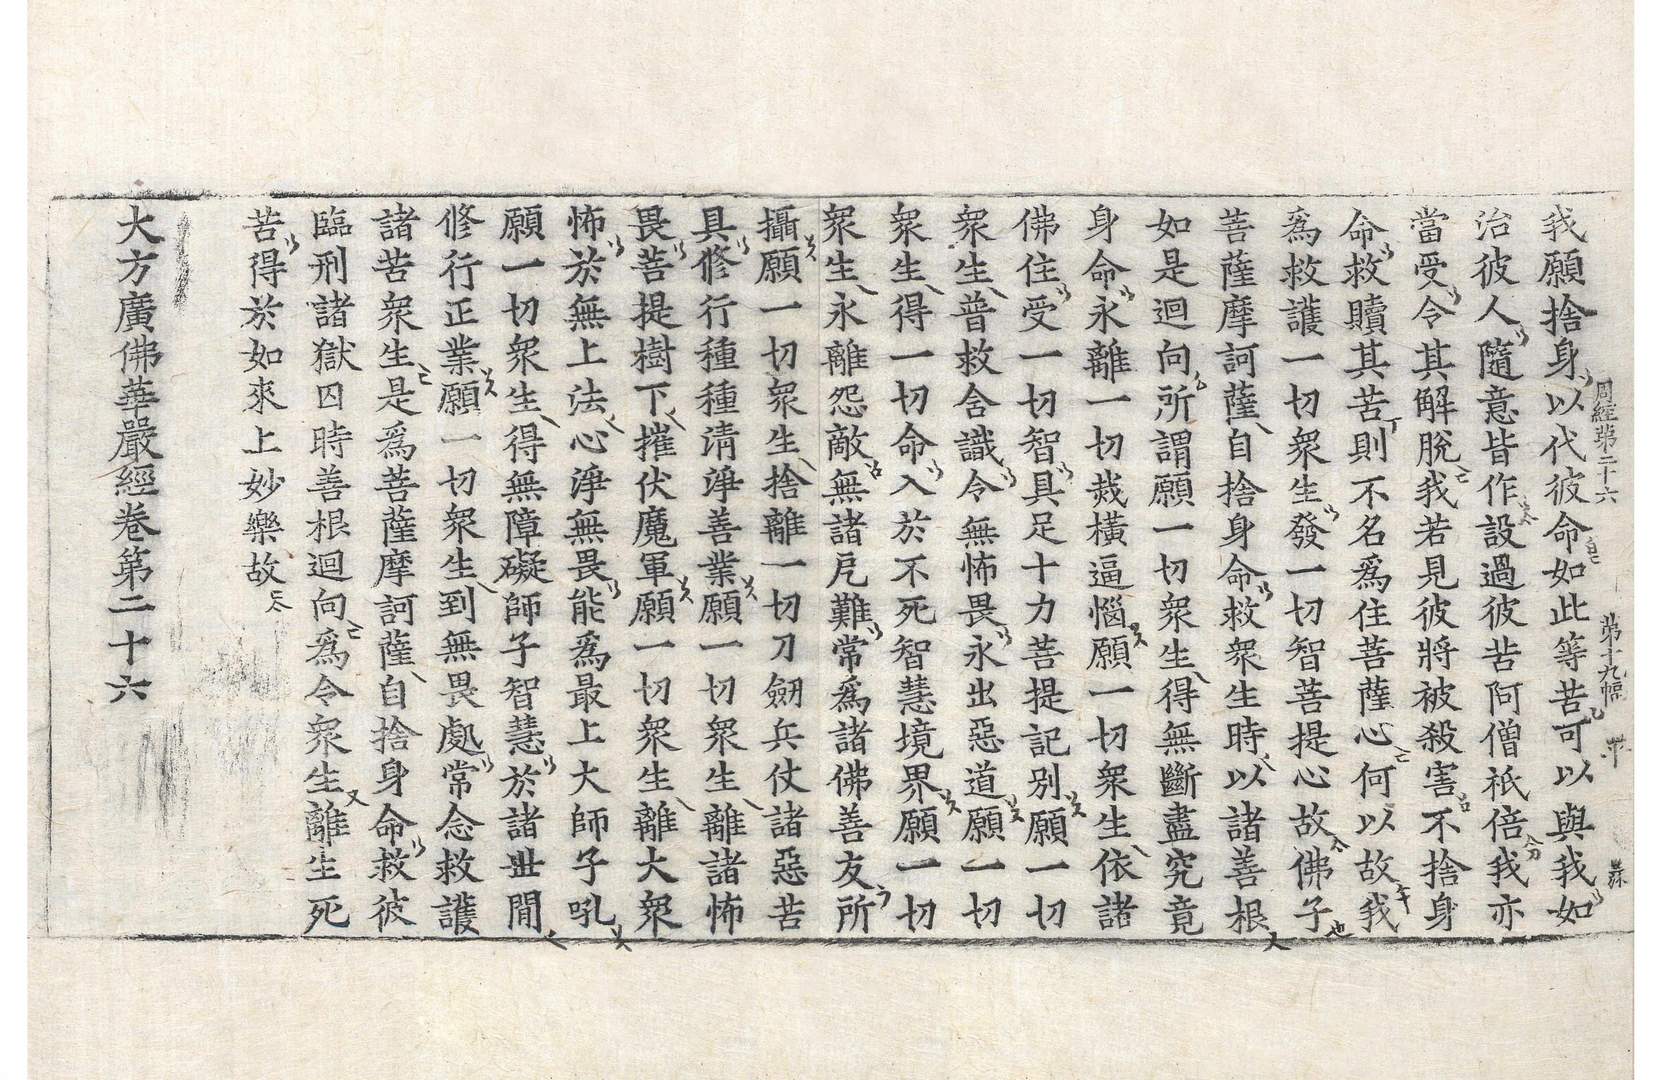 我願捨身以代彼命如此等苦可以與我如
周經第二十六 第十九幅
治彼人隨意皆作設過彼苦阿僧祇倍我亦
當受令其解脫我若見彼將被殺害不捨身
命救贖其苦則不名爲住菩薩心何以故我
爲救護一切衆生發一切智菩提心故佛子
菩薩摩訶薩自捨身命救衆生時以諸善根
如是迴向所謂願一切衆生得無斷盡究竟
身命永離一切烖橫逼惱願一切衆生依諸
佛住受一切智具足十力菩提記别願一切
衆生普救含識令無怖畏永出惡道願一切
衆生得一切命入於不死智慧境界願一切
衆生永離怨敵無諸戹難常爲諸佛善友所
攝願一切衆生捨離一切刀劒兵仗諸惡苦
具修行種種清淨善業願一切衆生離諸怖
畏菩提樹下摧伏魔軍願一切衆生離大衆
怖於無上法心淨無畏能爲最上大師子吼
願一切衆生得無障礙師子智慧於諸世間
修行正業願一切衆生到無畏處常念救護
諸苦衆生是爲菩薩摩訶薩自捨身命救彼
臨刑諸獄囚時善根迴向爲令衆生離生死
苦得於如來上妙樂故
大方廣佛華嚴經卷第二十六